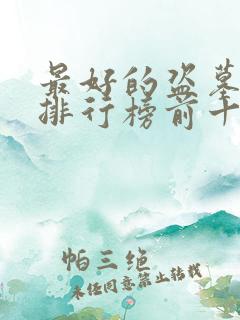 最好的盗墓
排行榜前十
帕三绝
未经同意禁止转载